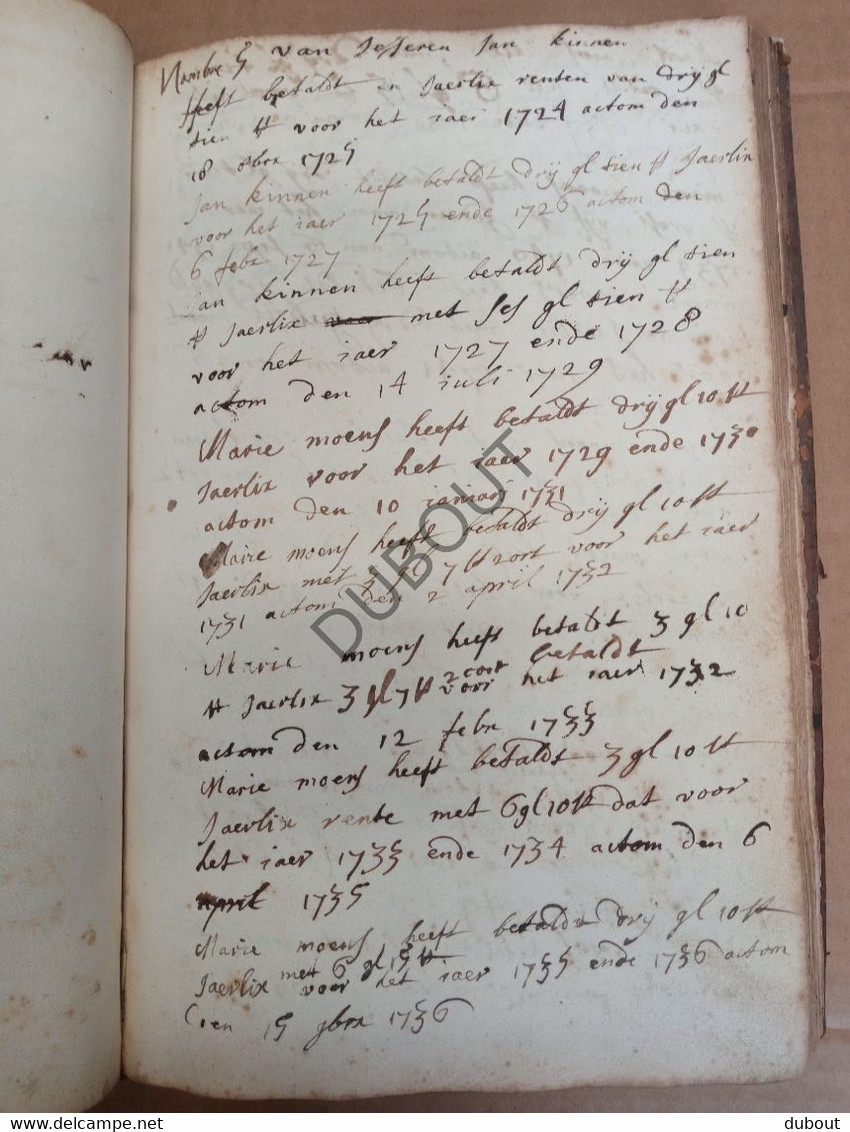 Nombre 5 van Jesseren Jan kinnen
Heeft betaldt en Jaerlix renten van drij gl
tien st voor het iaer 1724 actom den
18 8brx 1725
Jan kinnen heeft betaldt drij gl tien st Jaerlix
voor het iaer 1725 ende 1726 actom den
6 febr 1727
Jan kinnen heeft betaldt drij gl tien
st Jaerlix voor met ses gl tien st
voor het iaer 1727 ende 1728
actom den 14 iuli 1729
Marie moens heeft betaldt drij gl 10 st
Jaerlix voor het iaer 1729 ende 1730
actom den 10 ianiarij 1731
Marie moens heeft betaldt drij gl 10 st
Jaerlix met 3 gl 7 st 2 ort voor het iaer
1731 actom den 2 april 1732
Marie moens heeft betaldt 3 gl 10
st Jaerlix 3 gl 7 st 2 oort betaldt
voor het iaer 1732
actom den 12 febr 1733
Marie moens heeft betaldt 3 gl 10 st
Jaerlix rente met 6 gl 10 st dat voor
het iaer 1733 ende 1734 actom den 6
april 1735
Marie moens heeft betaldt drij gl 10 st
Jaerlix met 6 gl 15 st
voor het iaer 1735 ende 1736 actom
den 15 9brx 1736
DUBOUT
delcampe.net
dubout